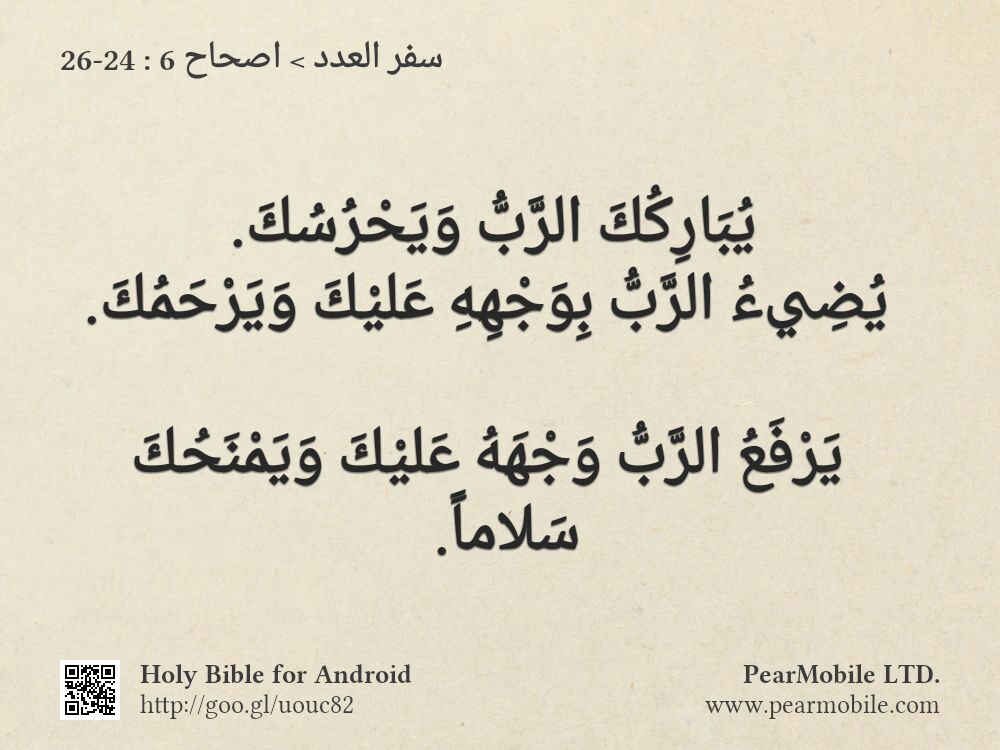 سفر العدد > اصحاح 6 : 24-26
يُبَارِكُكَ الرَّبُّ وَيَحْرُسُكَ.
يُضِيءُ الرَّبُّ بِوَجْهِهِ عَليْكَ وَيَرْحَمُكَ.
يَرْفَعُ الرَّبُّ وَجْهَهُ عَليْكَ وَيَمْنَحُكَ
سَلاماً.
Holy Bible for Android
http://goo.gl/uouc82
PearMobile LTD.
www.pearmobile.com